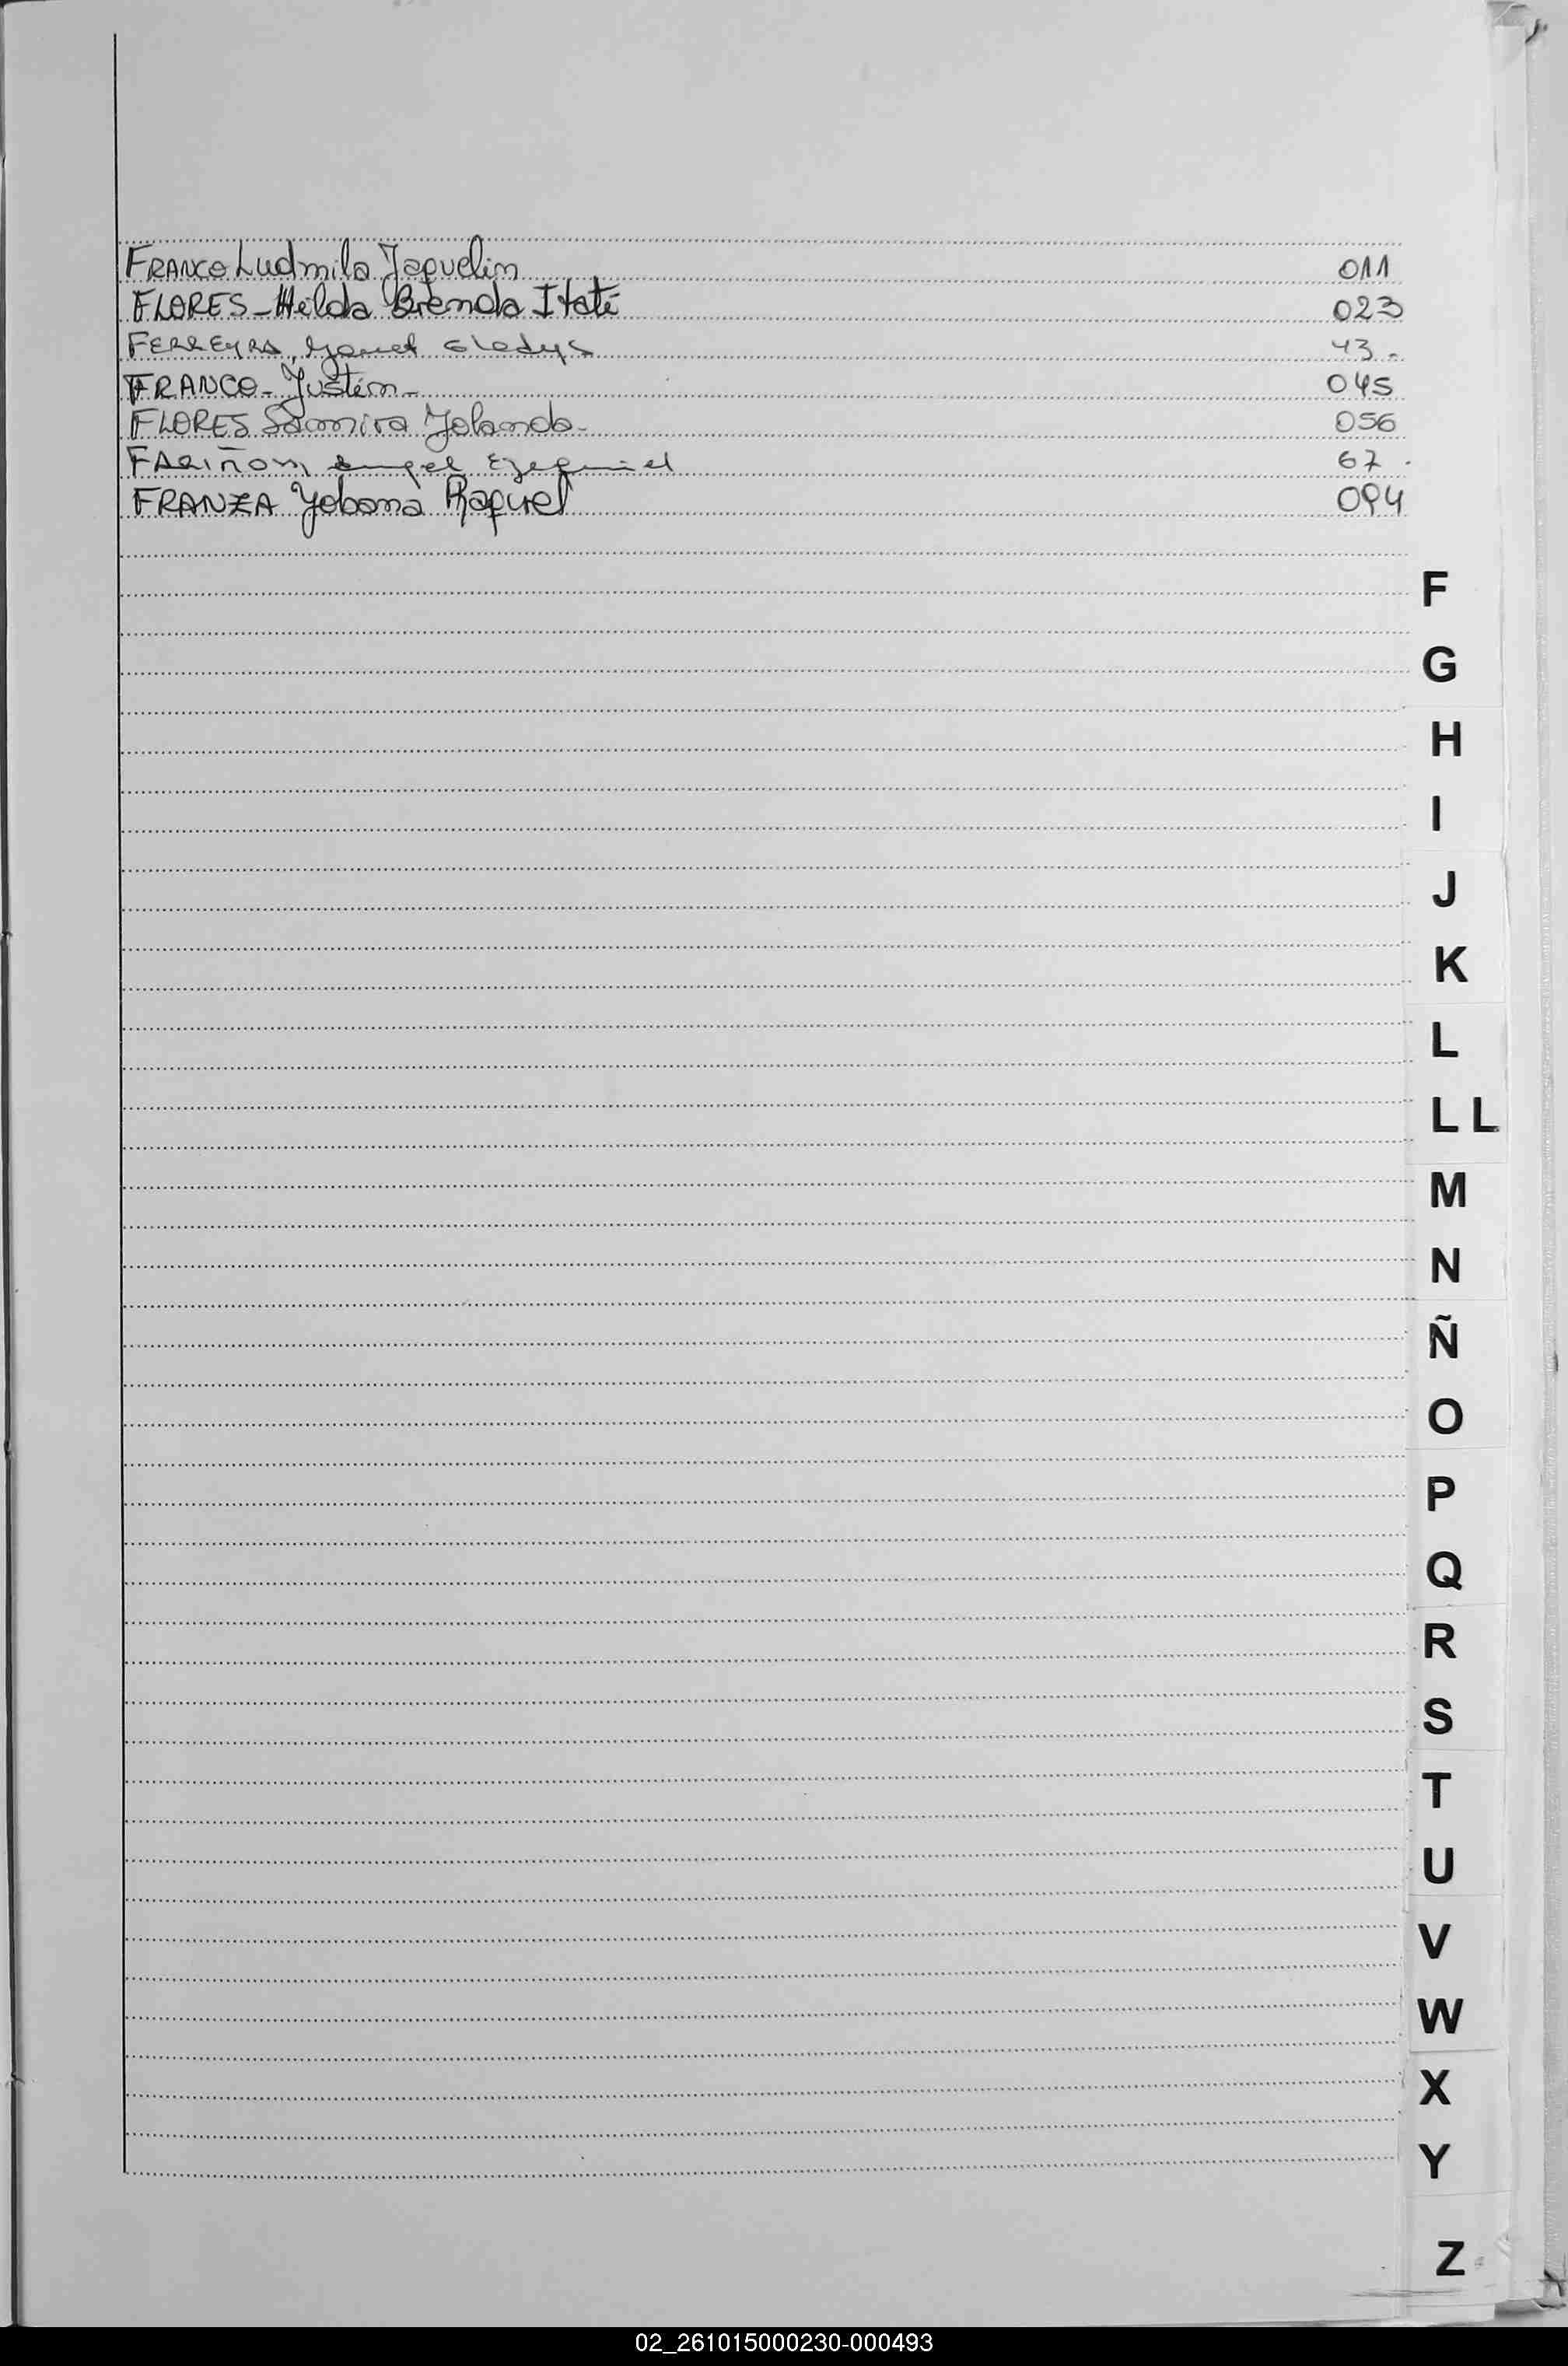 FRANCO Ludmila Jaquelin 011
FLORES - Hilda Brenda Itatí 023
FERREYRA, Yanet Gladys 43.-
FRANCO - Justin - 045
FLORES Samira Yolanda - 056
FARIÑON, Angel Ezequiel 67.
FRANZA Yobana Raquel 094
F
G
H
I
J
K
L
LL
M
N
Ñ
O
P
Q
R
S
T
U
V
W
X
Y
Z
02_261015000230-000493